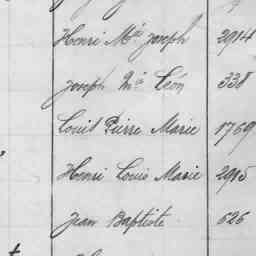 Henri Mie Joseph 2914
Joseph Mie Léon 338
Louis Pierre Marie 1769
Henri Louis Marie 2915
Jean Baptiste 626